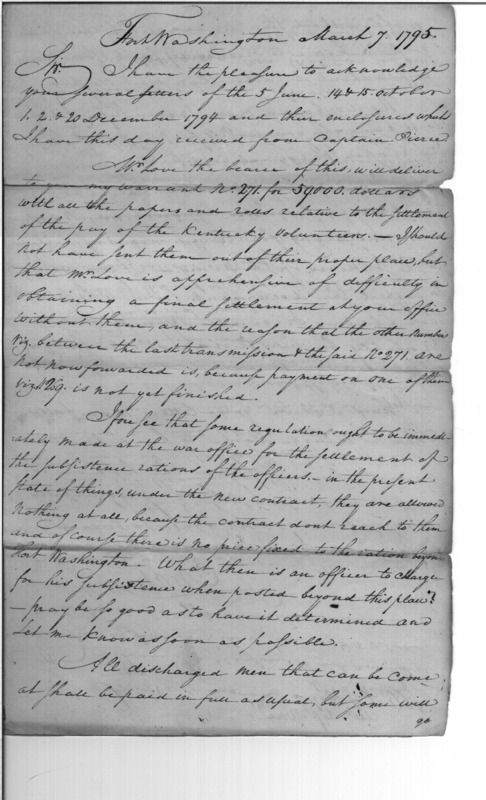 Fort Washington March 7. 1795.
Sir. I have the pleasure to acknowledge
your several letters of the 5 June. 14 & 15 October
1. 2. & 20 December 1794 and their enclosures which
I have this day received from Captain Pierce
Mr. Love the bearer of this, will deliver
to you my warrant No. 271. for 59000. dollars
with all the papers and rolls relative to the settlement
of the pay of the Kentucky Volunteers. — I should
not have sent them out of their proper place, but
that Mr. Love is apprehensive of difficulty in
obtaining a final settlement at your office
without them, and the reason that the other number
viz. between the last transmission & the said No. 271. are
not now forwarded is, because payment on one of them
viz. 269. is not yet finished.
I foresee that some regulation ought to be immedi-
ately made at the war office for the settlement of
the subsistence rations of the officers. — in the present
state of things, under the new contract, they are allowed
nothing at all, because the contract dont reach to them
and of course there is no price fixed to the ration beyon
Fort Washington. What then is an officer to charge
for his subsistence when posted beyond this place?
— pray be so good as to have it determined and
let me know as soon as possible.
All discharged men that can be come
at shall be paid in full as usual, but some will
go